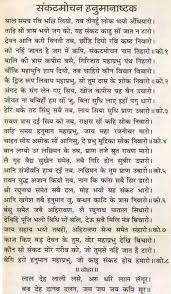 संकटमोचन हनुमानाष्टक
बाल समय रवि भक्षि लियो, तब तीनहुँ लोक भयो अँधियारो।
ताहि सों त्रास भयो जग को, यह संकट काहु सों जात न टारो।
देवन आनि करी बिनती तब, छाँड़ि दियो रवि कष्ट निवारो।
को नहिं जानत है जग में कपि, संकटमोचन नाम तिहारो॥को.१
बालि की त्रास कपीस बसै, गिरिजात महाप्रभु पंथ निहारो।
चौंकि महामुनि शाप दियो, तब चाहिये कौन विचार विचारो।
कै द्विज रूप लिवाय महाप्रभु, सो तुम दास के सोक निवारो॥को.२
अंगद के संग लेन गए सिय, खोज कपीस यह बैन उचारो।
जीवत ना बचिहौं हम सों जु, बिना सुधि लाए इहाँ पगु धारो।
हेरि थके तट सिंधु सबै तब, लाय सिया सुधि प्राण उबारो॥को.३
रावन त्रास दई सिय को तब, राक्षसि सों कहि सोक निवारो।
ताहि समय हनुमान महाप्रभु, जाय महा रजनीचर मारो।
चाहत सीय असोक सों आगिसु, दै प्रभु मुद्रिका सोक निवारो॥को.४
बान लग्यो उर लछिमन के तब, प्राण तजे सुत रावन मारो।
लै गृह बैद्य सुखेन समेत, तबै गिरि द्रोन सुबीर उपारो।
आनि संजीवनि हाथ दई तब, लछिमन के तुम प्राण उबारो॥को.५
रावन जुद्ध अजान कियो तब, नाग कि फाँस सबै सिर डारो।
श्री रघुनाथ समेत सबै दल, मोह भयो यह संकट भारो।
आनि खगेस तबै हनुमान जु, बंधन काटि सुत्रास निवारो॥को.६
बंधु समेत जबै अहिरावण, लै रघुनाथ पाताल सिधारो।
देविहिं पूजि भली बिधि सों बलि, देउ सबै मिलि मंत्र बिचारो।
जाय सहाय भयो तब ही, अहिरावण सैन्य समेत संहारो॥को.७
काज किए बड़ देवन के तुम, बीर महाप्रभु देखि बिचारो।
कौन सो संकट मोर गरीब को, जो तुमसे नहिं जात है टारो।
बेगि हरो हनुमान महाप्रभु, जो कछु संकट होय हमारो॥को.८
॥दोहा॥
लाल देह लाली लसे, अरु धरि लाल लंगूर।
बज्र देह दानव दलन, जय जय जय कपि सूर॥